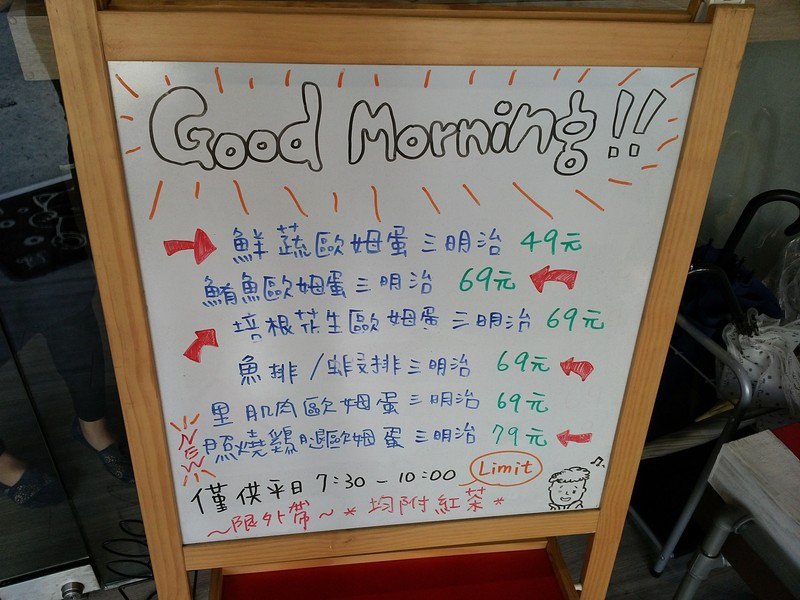 Good Morning!!
鮮蔬歐姆蛋三明治 49元
鮪魚歐姆蛋三明治 69元
培根花生歐姆蛋三明治 69元
魚排/蝦排三明治 69元
里肌肉歐姆蛋三明治 69元
NEW 照燒鷄腿歐姆蛋三明治 79元
僅供平日 7:30 - 10:00 Limit
~限外帶~ * 均附紅茶 *